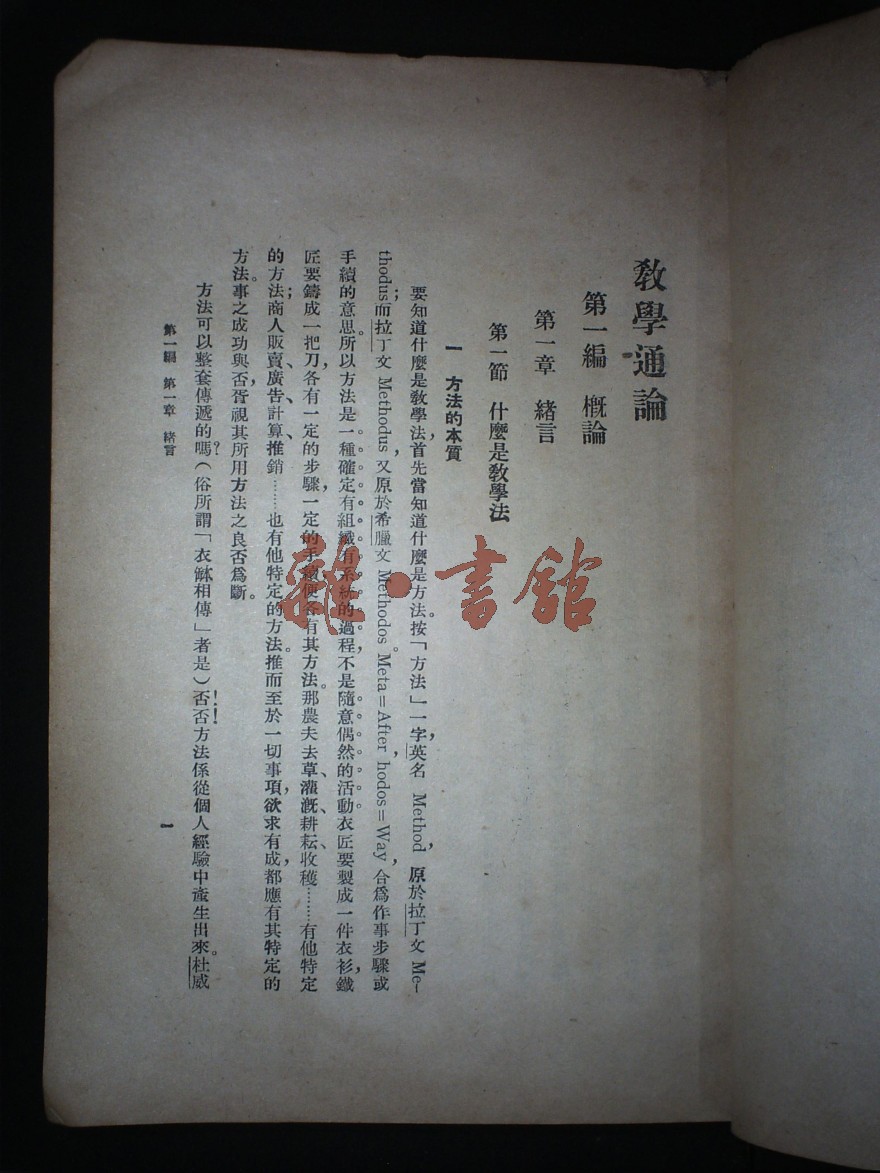 教學通論
第一編 概論
第一章 緒言
第一節 什麼是教學法
一 方法的本質
要知道什麼是教學法，首先當知道什麼是方法。按「方法」一字，英名 Method，原於拉丁文 Me-
thodus；而拉丁文 Methodus，又原於希臘文 Methodos。Meta＝After，hodos＝Way，合爲作事步驟或
手續的意思。所以方法是一種確定有組織有系統的過程，不是隨意偶然的活動。衣匠要製成一件衣衫，鐵
匠要鑄成一把刀，各有一定的步驟，一定的手續，便各有其方法。那農夫去草、灌漑、耕耘、收穫……有他特定
的方法；商人販賣、廣告、計算、推銷……也有他特定的方法。推而至於一切事項，欲求有成，都應有其特定的
方法。事之成功與否，胥視其所用方法之良否爲斷。
方法可以整套傳遞的嗎？（俗所謂「衣鉢相傳」者是）否！否！方法係從個人經驗中產生出來。杜威
第一編 第一章 緒言
一
雜·書館